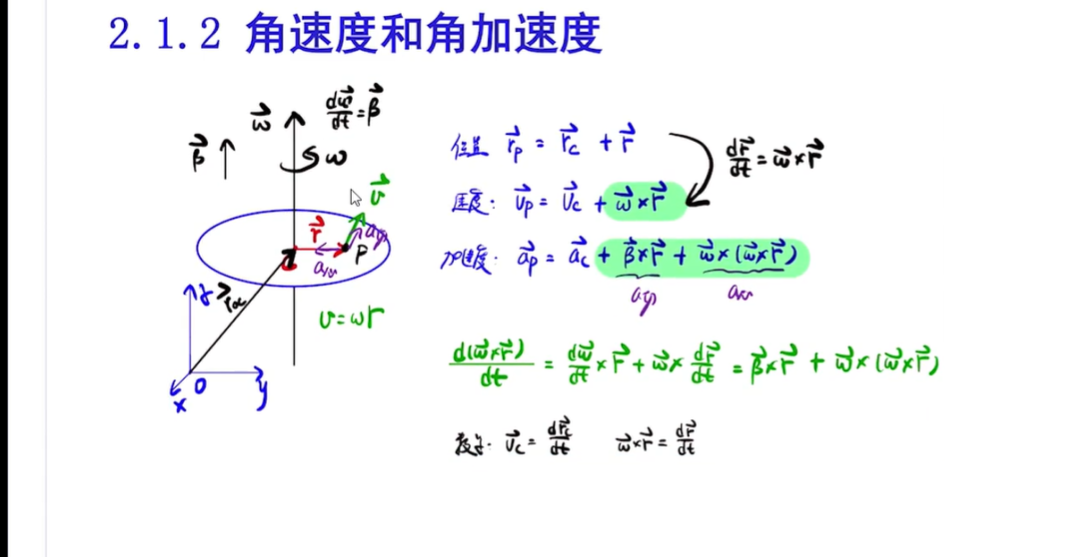 2.1.2 角速度和角加速度
ω⃗
dω⃗/dt=β⃗
β⃗
ω
v⃗
r⃗
P
v=ωr
z
O
x
y
位置 r⃗p = r⃗c + r⃗
dr⃗/dt = ω⃗×r⃗
速度: v⃗p = v⃗c + ω⃗×r⃗
加速度: a⃗p = a⃗c + β⃗×r⃗ + ω⃗×(ω⃗×r⃗)
d(ω⃗×r⃗)/dt = dω⃗/dt × r⃗ + ω⃗× dr⃗/dt = β⃗×r⃗ + ω⃗×(ω⃗×r⃗)
v⃗c = dr⃗c/dt ω⃗×r⃗ = dr⃗/dt